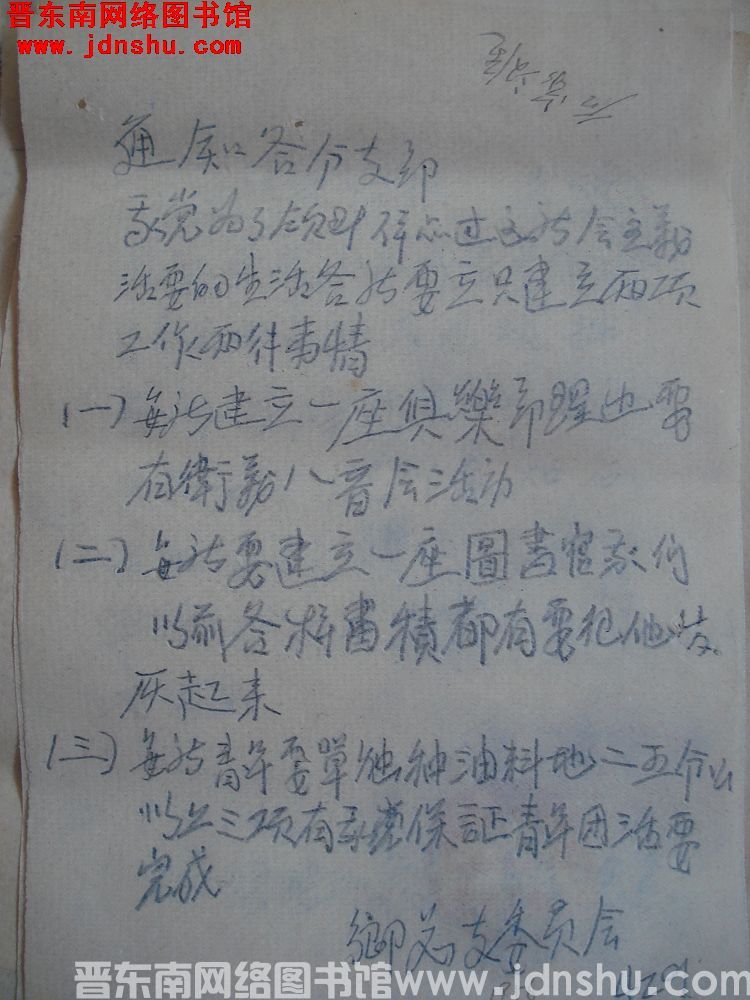 晋东南网络图书馆
www.jdnshu.com
通知各分支部
我党为了 过 社会主义
活要的生活各社要立只建立两项
工作两件事情
(一)每社建立一座俱乐部里边要
有 八音会活动
(二)每社要建立一座圖書馆我们
以前各样書積都有要把他
起来
(三)每社青年要單独种油料地二五分
以上三项有我党保証青年团活要
完成
鄉总支委员会
晋东南网络图书馆 www.jdnshu.com